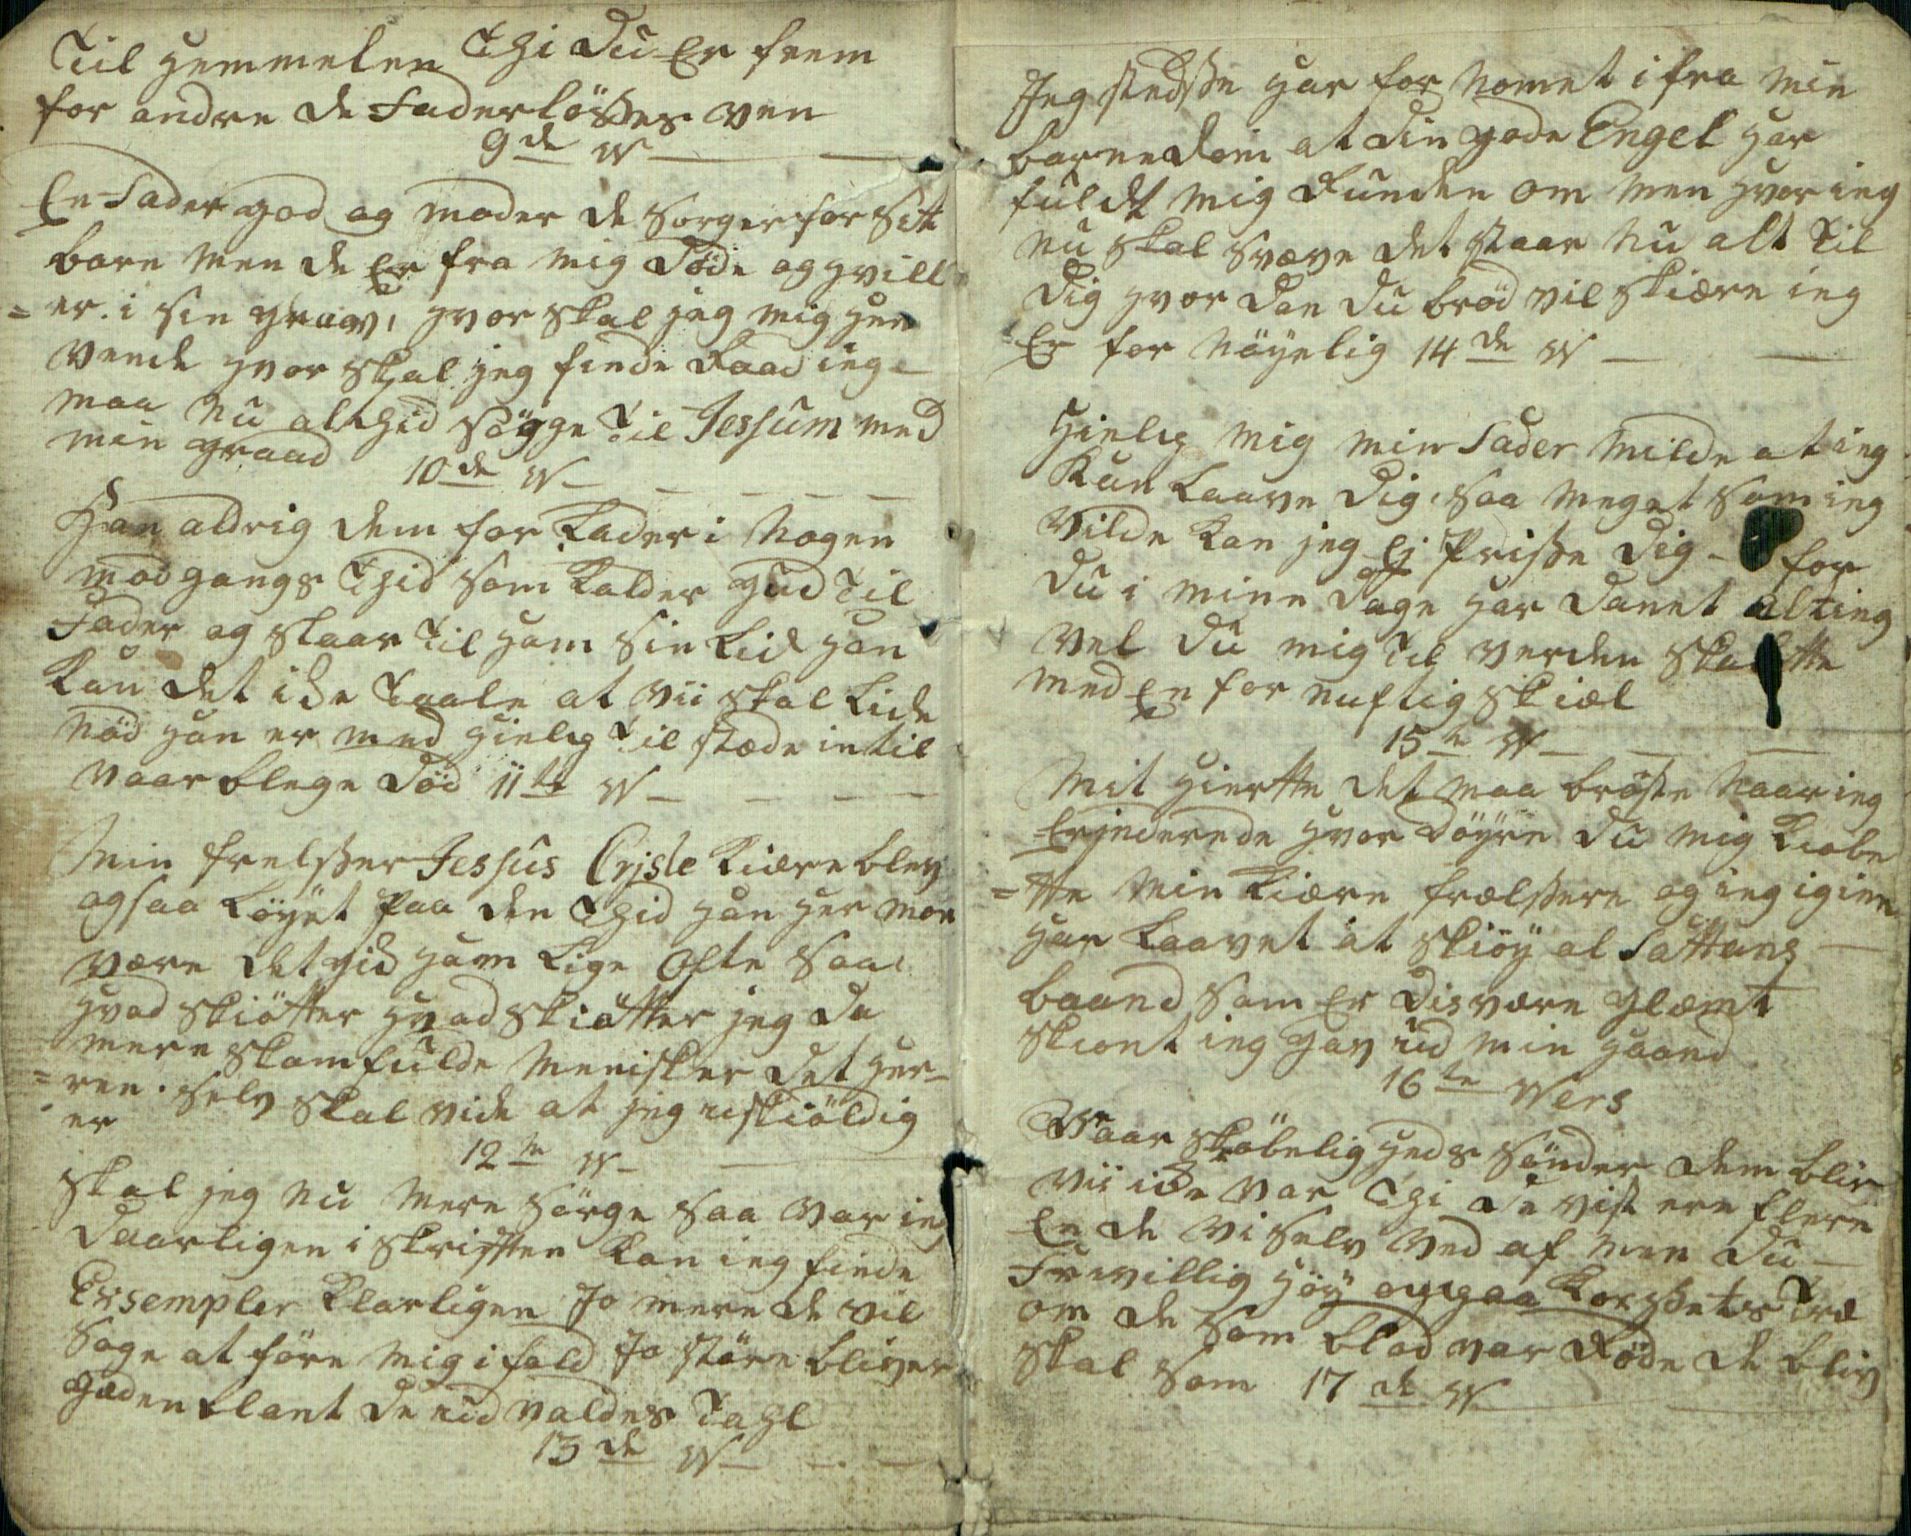 Til Hemmelen Thi Du Er frem
for andre de Faderlösses ven
9de W
En Fader god og moder de sorger for sit
barn men de Er fra mig Döde og hvill
= er i sin grav, hvor skal jeg mig hen
vende hvor skal jeg finde Raad ieg
maa nu altid Sögge Til Jessum med
min graad
10de W
Han aldrig dem for Lader i Nogen
modgangs Thid som Kalder Gud til
Fader og slaar Til ham sin Lid han
Kan det icke Taale at vii skal Lide
Nöd han er med hielp Til stæde intil
vaar blege Död 11te W
Min frelsser Jessus Crjste Kiære blev
ogsaa Löyet Paa den Thid han her mon
være det gik ham Lige Ofte saa
hvad skiötter hvad skiötter jeg da
mere skamfulde Menisker det her-
= ren selv skal vide at jeg uskiöldig
er
12te W
skal jeg nu mere sörge saa var ieg
Daarligen i skriften Kan ieg finde
Exsempler Klarligen Jo mere de vil
Söge at före mig i fald Jo större bliver
gæden blant de ud valdes Tahl
13de W
Jeg stedsse har for nomet i fra min
barnedom at din gode Engel har
fuldt mig Runden om men hvor ieg
nu skal svæve det staar nu alt Til
Dig hvor dan du bröd vil skiære ieg
Er for nöyelig 14de W
Hielp mig min Fader milde at ieg
Kan Laave Dig, saa meget som ieg
vilde Kan jeg Ej Prisse Dig - for
du i mine dage har danet alting
vel du mig Til verden skabtte
med En for nuftig skiæl
15te W
Mit hiertte det maa bröste naar ieg
Erjnderede hvor Döyre du mig Kiobe
= tte min Kiære frælssere og ieg igien
har Laavet at skiöy al Sattans
baand som Er disvære glæmt
skiont ieg gav ud min haand
16te Wers
Vaar skröbelig heds Sönder dem bliv
vii icke var Thi de vist ere flere
En de vi selv ved af men du
Frivillig höy oppaa Korssets Træ
om de som blod var Röde de bliv
skal som 17de W